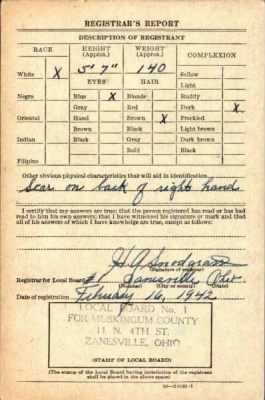 REGISTRAR'S REPORT
DESCRIPTION OF REGISTRANT
RACE HEIGHT (Approx.) WEIGHT (Approx.) COMPLEXION
White X 5' 7" 140 Sallow
EYES HAIR Light
Negro Blue X Blonde Ruddy
Gray Red Dark X
Oriental Hazel Brown X Freckled
Brown Black Light brown
Indian Black Gray Dark brown
Bald Black
Filipino
Other obvious physical characteristics that will aid in identification
Scar on back of right hand
I certify that my answers are true; that the person registered has read or has had
read to him his own answers; that I have witnessed his signature or mark and that
all of his answers of which I have knowledge are true, except as follows:
H A Snodgrass
(Signature of registrar)
Registrar for Local Board #1 Zanesville Ohio
Date of registration February 16, 1942
LOCAL BOARD No. 1
FOR MUSKINGUM COUNTY
11 N. 4TH ST.
ZANESVILLE, OHIO
(STAMP OF LOCAL BOARD)
(The stamp of the Local Board having jurisdiction of the registrant
shall be placed in the above space)